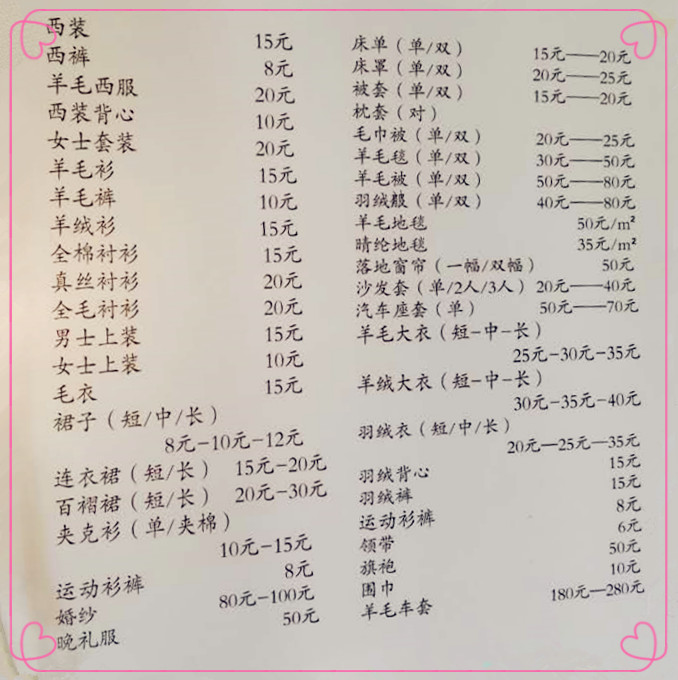 西装 15元
西裤 8元
羊毛西服 20元
西装背心 10元
女士套装 20元
羊毛衫 15元
羊毛裤 10元
羊绒衫 15元
全棉衬衫 15元
真丝衬衫 20元
全毛衬衫 20元
男士上装 15元
女士上装 10元
毛衣 15元
裙子（短/中/长）
8元-10元-12元
连衣裙（短/长） 15元-20元
百褶裙（短/长） 20元-30元
夹克衫（单/夹棉）
10元-15元
运动衫裤 8元
婚纱 80元-100元
晚礼服 50元
床单（单/双） 15元——20元
床罩（单/双） 20元——25元
被套（单/双） 15元——20元
枕套（对）
毛巾被（单/双） 20元——25元
羊毛毯（单/双） 30元——50元
羊毛被（单/双） 50元——80元
羽绒（单/双） 40元——80元
羊毛地毯 50元/m²
晴纶地毯 35元/m²
落地窗帘（一幅/双幅） 50元
沙发套（单/2人/3人） 20元——40元
汽车座套（单） 50元——70元
羊毛大衣（短-中-长）
25元-30元-35元
羊绒大衣（短-中-长）
30元-35元-40元
羽绒衣（短/中/长）
20元—25元—35元
羽绒背心 15元
羽绒裤 15元
运动衫裤 8元
领带 6元
旗袍 50元
围巾 10元
羊毛车套 180元—280元